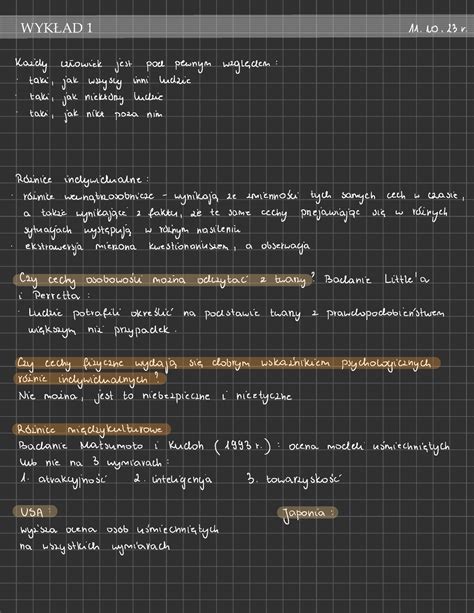 WYKŁAD 1
11.10.23 r.
Każdy człowiek jest pod pewnym względem:
· taki, jak wszyscy inni ludzie
· taki, jak niektórzy ludzie
· taki, jak nikt poza nim
Różnice indywidualne:
· różnice wewnątrzosobnicze - wynikają ze zmienności tych samych cech w czasie,
a także wynikające z faktu, że te same cechy przejawiające się w różnych
sytuacjach występują w różnym nasileniu
· ekstrawersja mierzona kwestionariuszem, a obserwacja
Czy cechy osobowości można odczytać z twarzy? Badanie Little'a
i Perretta:
· Ludzie potrafili określić na podstawie twarzy z prawdopodobieństwem
większym niż przypadek.
Czy cechy fizyczne wydają się dobrym wskaźnikiem psychologicznych
różnic indywidualnych?
Nie można, jest to niebezpieczne i nieetyczne
Różnice międzykulturowe
Badanie Matsumoto i Kudoh (1993 r.): ocena modeli uśmiechniętych
lub nie na 3 wymiarach:
1. atrakcyjność 2. inteligencja 3. towarzyskość
USA:
Japonia:
wyższa ocena osób uśmiechniętych
na wszystkich wymiarach